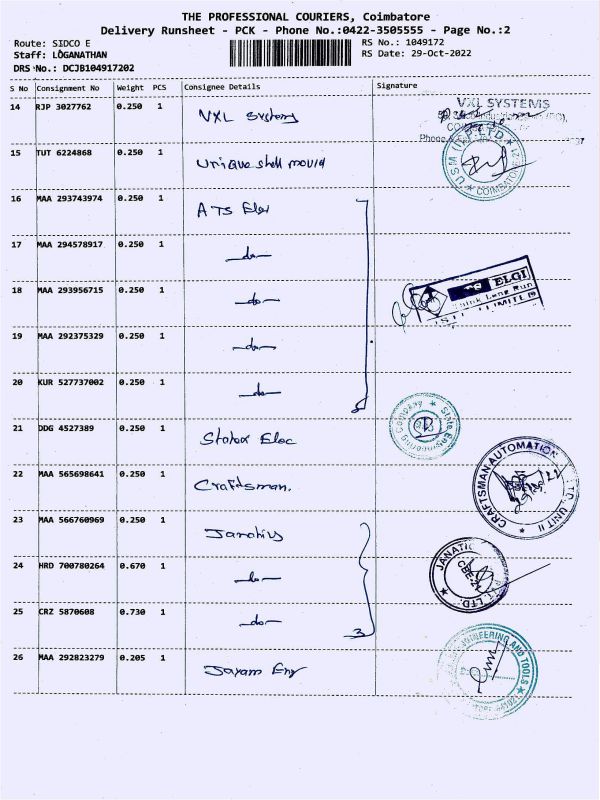 THE PROFESSIONAL COURIERS, Coimbatore
Delivery Runsheet - PCK - Phone No.:0422-3505555 - Page No.:2
Route: SIDCO E
RS No.: 1049172
Staff: LOGANATHAN
RS Date: 29-Oct-2022
DRS No.: DCJB104917202
S No Consignment No Weight PCS Consignee Details Signature
14 RJP 3027762 0.250 1 VXL Systems
VXL SYSTEMS
Phone
15 TUT 6224868 0.250 1 Unique shell mould
USM (I) P LTD COIMBATORE
16 MAA 293743974 0.250 1 ATS Elgi
17 MAA 294578917 0.250 1 -do-
18 MAA 293956715 0.250 1 -do-
ELGI
Think Long Run
19 MAA 292375329 0.250 1 -do-
20 KUR 527737002 0.250 1 -do-
5
21 DDG 4527389 0.250 1 Elec
Engineering Company
22 MAA 565698641 0.250 1 Craftsman.
CRAFTSMAN AUTOMATION LTD, UNIT II
23 MAA 566760969 0.250 1 Janatics
24 HRD 700780264 0.670 1 -do-
JANATIC LTD. CBE-21
25 CRZ 5870608 0.730 1 -do-
3
26 MAA 292823279 0.205 1 Jayam Eng
ENGINEERING AND TOOLS